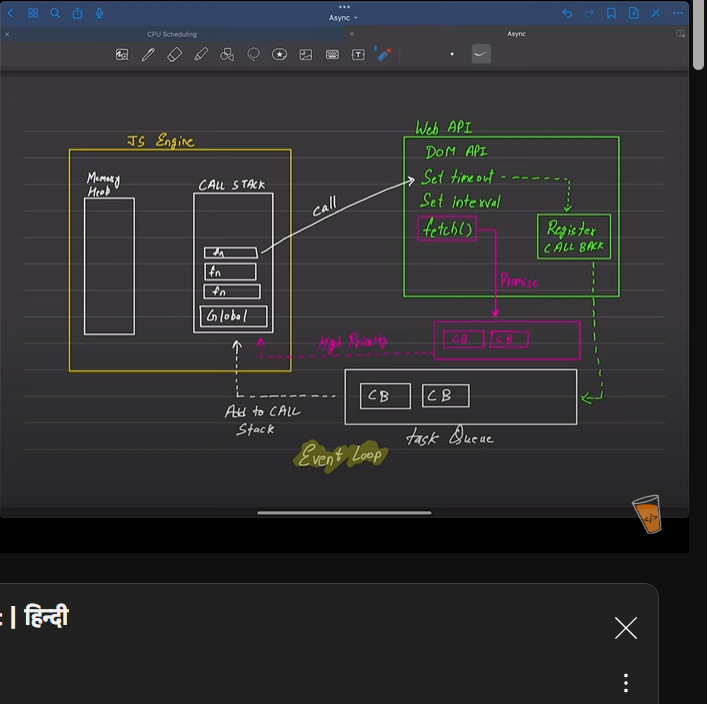 Async
CPU Scheduling
Async
JS Engine
Memory
Heap
CALL STACK
fn
fn
fn
Global
call
Web API
DOM API
Set timeout
Set interval
fetch()
Register
CALL BACK
Promise
CB CB
High Priority
CB CB
Add to CALL
Stack
task Queue
Event Loop
</>
: | हिन्दी